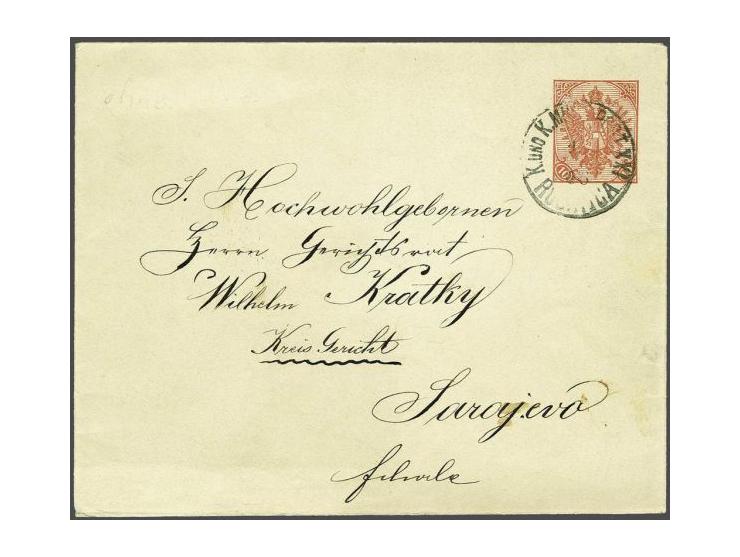 K. UND K.
10
S. Hochwohlgebornen
Herrn Gerichtsrat
Wilhelm Kratky
Kreis Gericht
Sarajevo
filiale